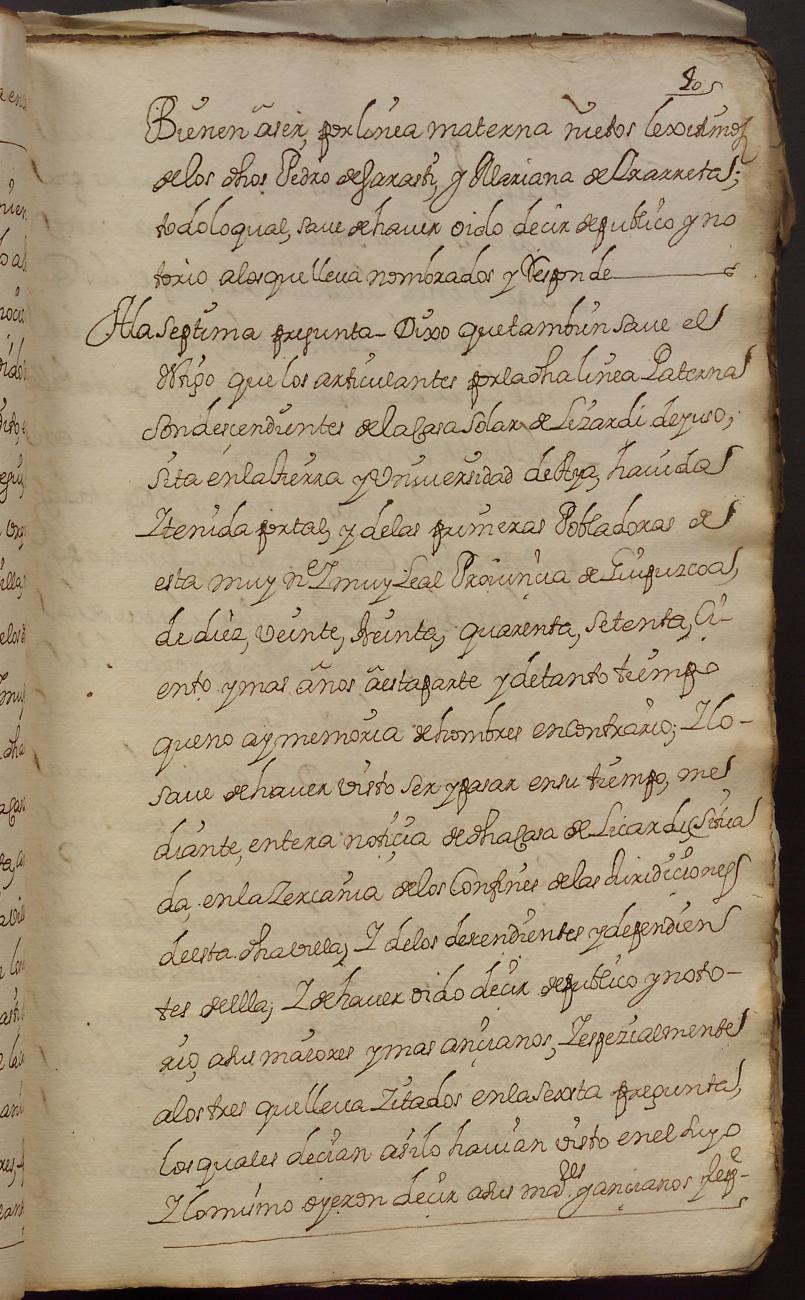 80
Bienen âser, por linea materna nietos lexitimos
delos dhos Pedro de Garasti, y Mariana de Ararreta;
todoloqual, saue dehauer oido decir depublico y no
torio alosquelleua nombrados y Responde
Ala septima pregunta- Dixo quetambien saue el
testigo que los articulantes porladha linea Paterna
sondescendientes delaCasa solar de Lizardi deyuso,
sita enlatierra yVniuersidad deAya, hauida
Ytenida portal, y delas primeras Pobladoras de
esta muy ne Ymuy Leal Prouincia de Guipuzcoa,
de diez, veinte, treinta, quarenta, setenta, Ci-
ento ymas años âestaparte ydetanto tiempo
queno aymemoria dehombres encontrario; Ylo-
saue dehauer visto ser ypasar ensu tiempo, me
diante, entera noticia de dhaCasa de Licardi, Situa
da, enlaZercania delos Confines delas Juridiciones
deesta dhavilla; Y delos dezendientes ydependien
tes deella; Y dehauer oido decir depublico ynoto-
rio, asus maiores ymas ançianos, Yespezialmente
alostres quelleua Zitados enlasexta pregunta,
los quales decian asilo hauian visto enel suyo
Ylomismo oyeron decir asus mares yançianos